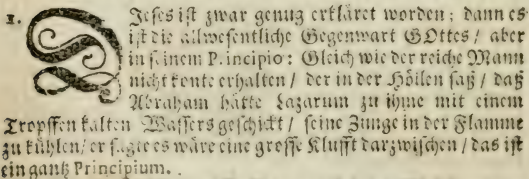 1. DJeses ist zwar genug erkläret worden; dann es
ist die allwesentliche Gegenwart GOttes / aber
in seinem Principio: Gleich wie der reiche Mann
nicht konte erhalten / der in der Höllen saß / daß
Abraham hätte Lazarum zu ihme mit einem
Tropffen kalten Wassers geschickt / seine Zunge in der Flamme
zu kühlen; er sagte es wäre eine grosse Klufft darzwischen / das ist
ein gantz Principium.